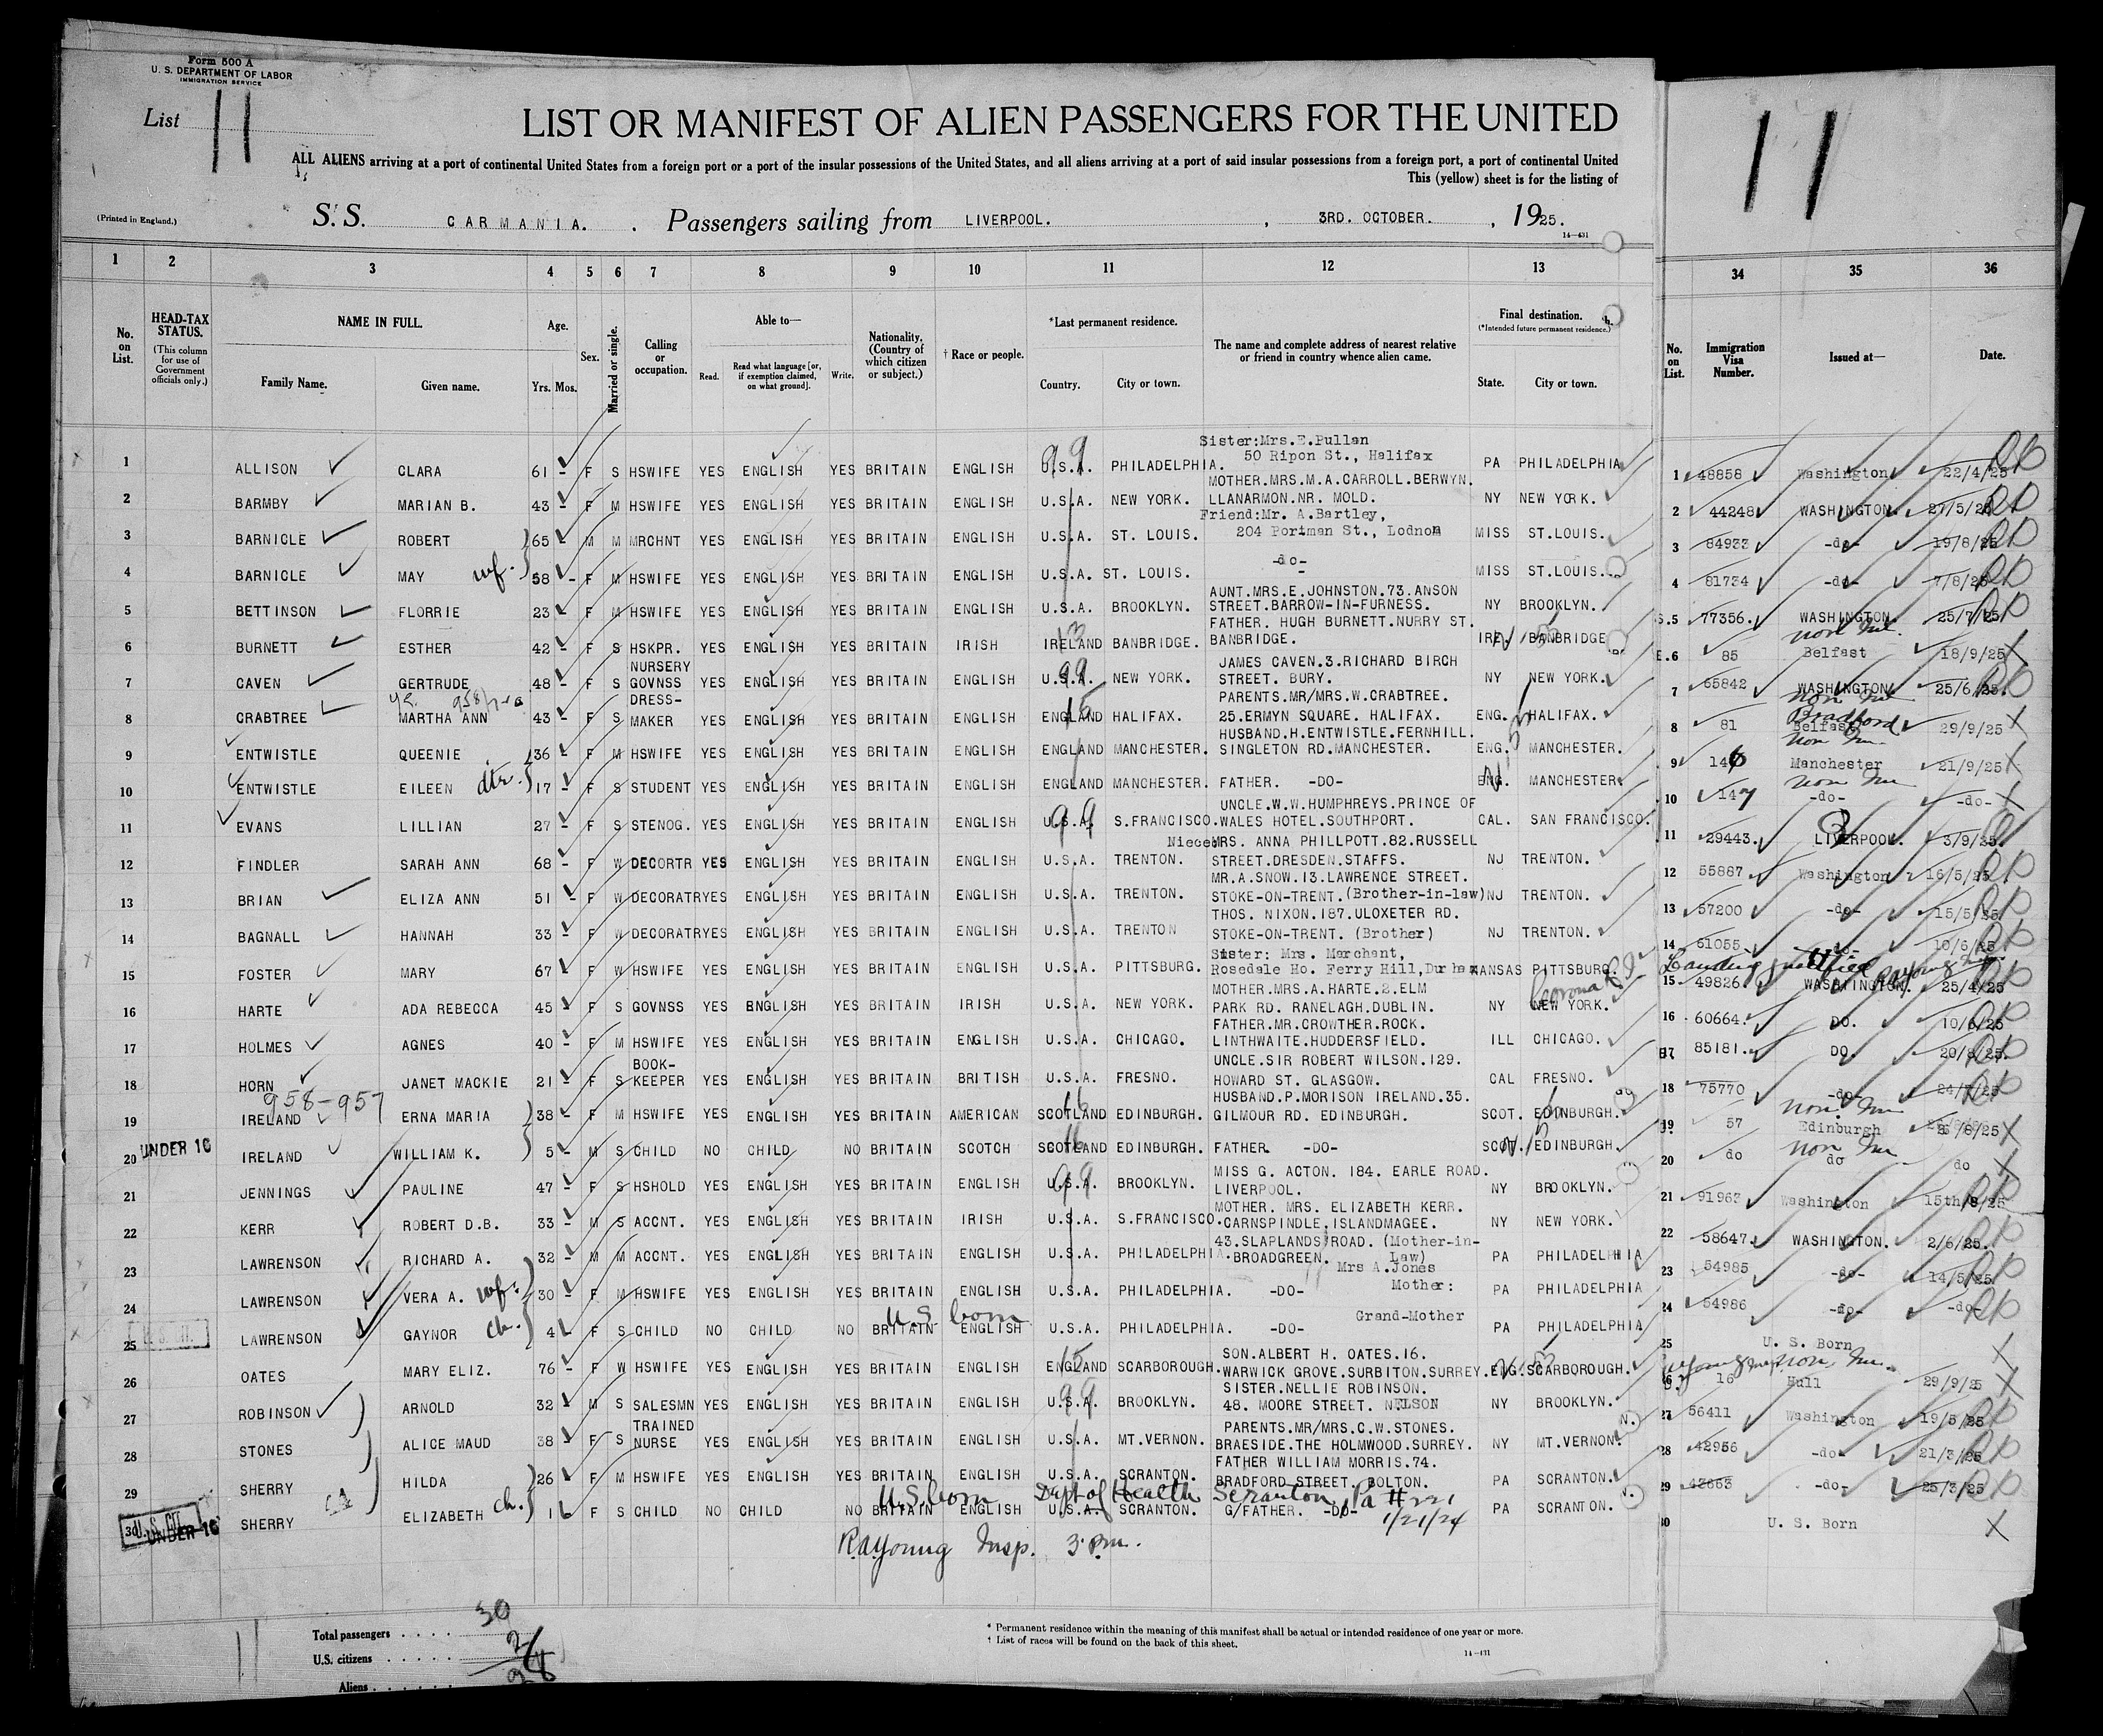 Form 500 A
U. S. DEPARTMENT OF LABOR
IMMIGRATION SERVICE
List 11
LIST OR MANIFEST OF ALIEN PASSENGERS FOR THE UNITED
11
ALL ALIENS arriving at a port of continental United States from a foreign port or a port of the insular possessions of the United States, and all aliens arriving at a port of said insular possessions from a foreign port, a port of continental United
This (yellow) sheet is for the listing of
(Printed in England.)
S.S. CARMANIA. . Passengers sailing from LIVERPOOL. , 3RD. OCTOBER. , 1925.
14—431
1 2 3 4 5 6 7 8 9 10 11 12 13 34 35 36
No. on List.
HEAD-TAX STATUS.
(This column for use of Government officials only.)
NAME IN FULL.
Family Name. Given name.
Age.
Yrs. Mos.
Sex.
Married or single.
Calling or occupation.
Able to—
Read. Read what language [or, if exemption claimed, on what ground]. Write.
Nationality. (Country of which citizen or subject.)
† Race or people.
*Last permanent residence.
Country. City or town.
The name and complete address of nearest relative or friend in country whence alien came.
Final destination.
(*Intended future permanent residence.)
State. City or town.
No. on List.
Immigration Visa Number.
Issued at—
Date.
Sister:Mrs.E.Pullan
50 Ripon St., Halifax
1 ALLISON CLARA 61 - F S HSWIFE YES ENGLISH YES BRITAIN ENGLISH U.S.A. PHILADELPHIA. PA PHILADELPHIA 1 48858 Washington 22/4/25
MOTHER.MRS.M.A.CARROLL.BERWYN.
2 BARMBY MARIAN B. 43 - F M HSWIFE YES ENGLISH YES BRITAIN ENGLISH U.S.A. NEW YORK. LLANARMON.NR. MOLD. NY NEW YORK. 2 44248 WASHINGTON. 27/5/25
Friend:Mr. A.Bartley,
3 BARNICLE ROBERT 65 - M M MRCHNT YES ENGLISH YES BRITAIN ENGLISH U.S.A. ST. LOUIS. 204 Portman St., Lodnon MISS ST.LOUIS. 3 84933 -do- 19/8/25
4 BARNICLE MAY wf. 58 - F M HSWIFE YES ENGLISH YES BRITAIN ENGLISH U.S.A. ST. LOUIS. -do- MISS ST.LOUIS. 4 81734 -do- 7/8/25
AUNT.MRS.E.JOHNSTON.73.ANSON
5 BETTINSON FLORRIE 23 - F M HSWIFE YES ENGLISH YES BRITAIN ENGLISH U.S.A. BROOKLYN. STREET.BARROW-IN-FURNESS. NY BROOKLYN. 5 77356. WASHINGTON. 25/7/25
FATHER. HUGH BURNETT.NURRY ST.
6 BURNETT ESTHER 42 - F S HSKPR. YES ENGLISH YES BRITAIN IRISH IRELAND BANBRIDGE. BANBRIDGE. IRE. BANBRIDGE 6 85 Belfast 18/9/25
NURSERY JAMES CAVEN.3.RICHARD BIRCH
7 CAVEN GERTRUDE 48 - F S GOVNSS YES ENGLISH YES BRITAIN ENGLISH U.S.A. NEW YORK. STREET. BURY. NY NEW YORK. 7 65842 WASHINGTON. 25/6/25.
DRESS- PARENTS.MR/MRS.W.CRABTREE.
8 CRABTREE MARTHA ANN 43 - F S MAKER YES ENGLISH YES BRITAIN ENGLISH ENGLAND HALIFAX. 25.ERMYN SQUARE. HALIFAX. ENG. HALIFAX. 8 81 Bradford Belfast 29/9/25
HUSBAND.H.ENTWISTLE.FERNHILL.
9 ENTWISTLE QUEENIE 36 - F M HSWIFE YES ENGLISH YES BRITAIN ENGLISH ENGLAND MANCHESTER. SINGLETON RD.MANCHESTER. ENG. MANCHESTER. 9 146 Manchester 21/9/25
10 ENTWISTLE EILEEN dtr. 17 - F S STUDENT YES ENGLISH YES BRITAIN ENGLISH ENGLAND MANCHESTER. FATHER. -DO- ENG. MANCHESTER. 10 147 -do- -do-
UNCLE.W.W.HUMPHREYS.PRINCE OF
11 EVANS LILLIAN 27 - F S STENOG. YES ENGLISH YES BRITAIN ENGLISH U.S.A. S.FRANCISCO. WALES HOTEL.SOUTHPORT. CAL. SAN FRANCISCO. 11 29443. LIVERPOOL. 3/9/25.
Niece: MRS. ANNA PHILLPOTT.82.RUSSELL
12 FINDLER SARAH ANN 68 - F W DECORTR YES ENGLISH YES BRITAIN ENGLISH U.S.A. TRENTON. STREET.DRESDEN.STAFFS. NJ TRENTON. 12 55887 Washington 16/5/25
MR.A.SNOW.13.LAWRENCE STREET.
13 BRIAN ELIZA ANN 51 - F W DECORATR YES ENGLISH YES BRITAIN ENGLISH U.S.A. TRENTON. STOKE-ON-TRENT.(Brother-in-law) NJ TRENTON. 13 57200 -do- 15/5/25
THOS. NIXON.187.ULOXETER RD.
14 BAGNALL HANNAH 33 - F W DECORATR YES ENGLISH YES BRITAIN ENGLISH U.S.A. TRENTON STOKE-ON-TRENT. (Brother) NJ TRENTON. 14 61055 -do- 10/6/25
Sister: Mrs. Merchant,
15 FOSTER MARY 67 - F W HSWIFE YES ENGLISH YES BRITAIN ENGLISH U.S.A. PITTSBURG. Rosedale Ho. Ferry Hill,Durham KANSAS PITTSBURG. 15 49826 WASHINGTON. 25/4/25
MOTHER.MRS.A.HARTE.2.ELM
16 HARTE ADA REBECCA 45 - F S GOVNSS YES ENGLISH YES BRITAIN IRISH U.S.A. NEW YORK. PARK RD. RANELAGH.DUBLIN. NY NEW YORK. 16 60664. DO. 10/6/25
FATHER.MR.CROWTHER.ROCK.
17 HOLMES AGNES 40 - F M HSWIFE YES ENGLISH YES BRITAIN ENGLISH U.S.A. CHICAGO. LINTHWAITE.HUDDERSFIELD. ILL CHICAGO. 17 85181. DO. 20/8/25.
BOOK- UNCLE.SIR ROBERT WILSON.129.
18 HORN JANET MACKIE 21 - F S KEEPER YES ENGLISH YES BRITAIN BRITISH U.S.A. FRESNO. HOWARD ST. GLASGOW. CAL FRESNO. 18 75770 -do- 24/7/25
958-957 HUSBAND.P.MORISON IRELAND.35.
19 IRELAND ERNA MARIA 38 - F M HSWIFE YES ENGLISH YES BRITAIN AMERICAN SCOTLAND EDINBURGH. GILMOUR RD. EDINBURGH. SCOT. EDINBURGH. 19 57 Edinburgh /8/25
20 UNDER 16 IRELAND WILLIAM K. 5 - M S CHILD NO CHILD NO BRITAIN SCOTCH SCOTLAND EDINBURGH. FATHER. -DO- SCOT. EDINBURGH. 20 do do do
MISS G. ACTON. 184. EARLE ROAD.
21 JENNINGS PAULINE 47 - F S HSHOLD YES ENGLISH YES BRITAIN ENGLISH U.S.A. BROOKLYN. LIVERPOOL. NY BROOKLYN. 21 91963 Washington 15th/9/25
MOTHER. MRS. ELIZABETH KERR.
22 KERR ROBERT D.B. 33 - M S ACCNT. YES ENGLISH YES BRITAIN IRISH U.S.A. S.FRANCISCO. CARNSPINDLE.ISLANDMAGEE. NY NEW YORK. 22 58647. WASHINGTON. 2/6/25.
43.SLAPLANDS ROAD. (Mother-in-Law)
23 LAWRENSON RICHARD A. 32 - M M ACCNT. YES ENGLISH YES BRITAIN ENGLISH U.S.A. PHILADELPHIA. BROADGREEN. Mrs A.Jones PA PHILADELPHIA 23 54985 -do- 14/5/25
24 LAWRENSON VERA A. wf. 30 - F M HSWIFE YES ENGLISH YES BRITAIN ENGLISH U.S.A. PHILADELPHIA. -DO- Mother: PA PHILADELPHIA 24 54986 -do- -do-
U.S. born Grand-Mother
25 LAWRENSON GAYNOR ch. 4 - F S CHILD NO CHILD NO BRITAIN ENGLISH U.S.A. PHILADELPHIA. -DO- PA PHILADELPHIA 25 U. S. Born
SON.ALBERT H. OATES.16.
26 OATES MARY ELIZ. 76 - F W HSWIFE YES ENGLISH YES BRITAIN ENGLISH ENGLAND SCARBOROUGH. WARWICK GROVE.SURBITON.SURREY. ENG. SCARBOROUGH. 16 Hull 29/9/25
SISTER.NELLIE ROBINSON.
27 ROBINSON ARNOLD 32 - M S SALESMN YES ENGLISH YES BRITAIN ENGLISH U.S.A. BROOKLYN. 48. MOORE STREET. NELSON NY BROOKLYN. 27 56411 Washington 19/5/25
TRAINED PARENTS.MR/MRS.C.W.STONES.
28 STONES ALICE MAUD 38 - F S NURSE YES ENGLISH YES BRITAIN ENGLISH U.S.A. MT.VERNON. BRAESIDE.THE HOLMWOOD.SURREY. NY MT.VERNON. 28 42956 -do- 21/3/25
FATHER WILLIAM MORRIS.74.
29 SHERRY HILDA 26 F M HSWIFE YES ENGLISH YES BRITAIN ENGLISH U.S.A. SCRANTON. BRADFORD STREET. BOLTON. PA SCRANTON. 29 43663 -do- 25/3/25
U.S. born Dept of Health Scranton, Pa # 221 1/21/24
30 U.S. CIT. UNDER 16 SHERRY ELIZABETH ch. 1 F S CHILD NO CHILD NO BRITAIN ENGLISH U.S.A. SCRANTON. G/FATHER. -DO- PA SCRANTON. 30 U. S. Born
RAYoung Insp. 3 pm.
Total passengers . . . . 30
U.S. citizens . . . . . 2
Aliens . . . . . . 28
* Permanent residence within the meaning of this manifest shall be actual or intended residence of one year or more.
† List of races will be found on the back of this sheet.
14—431